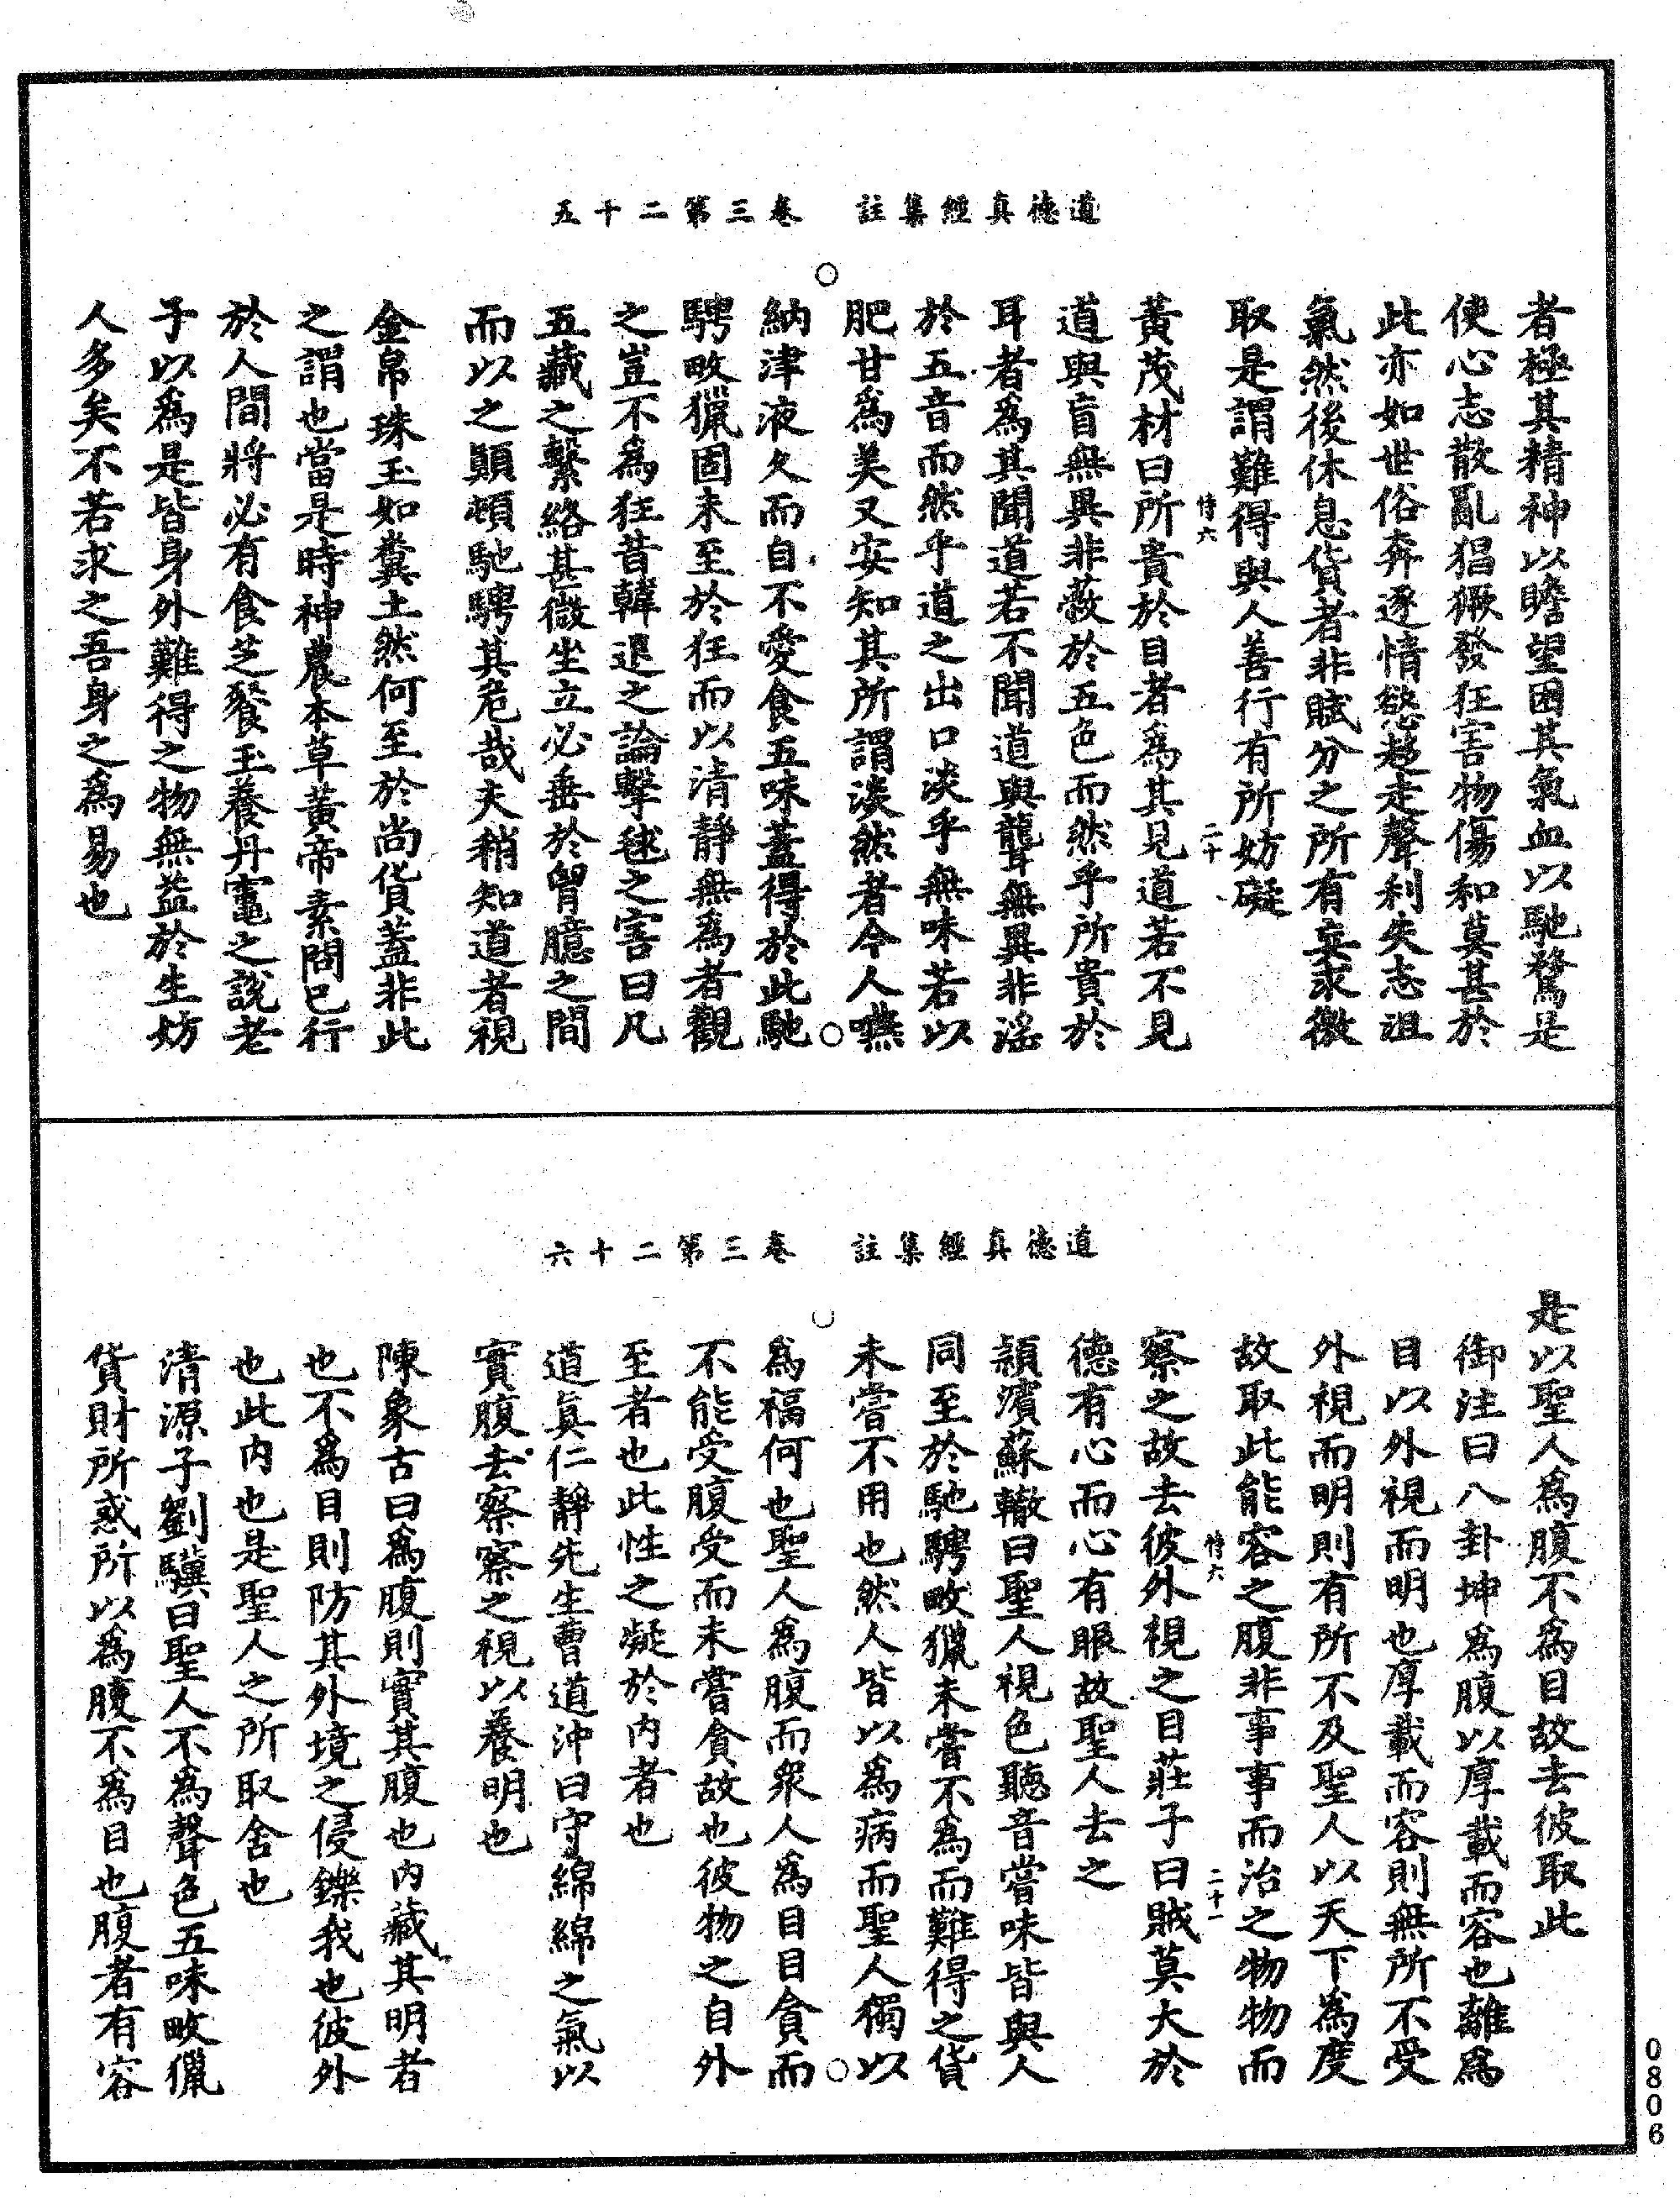 道德真經集註　卷三第二十五
者極其精神以瞻望困其氣血以馳騖是
使心志散亂猖獗發狂害物傷和莫甚於
此亦如世俗奔逐情慾趍走聲利失志沮
氣然後休息貨者非賦分之所有妄求徼
取是謂難得與人善行有所妨礙
恃六　二十
黃茂材曰所貴於目者為其見道若不見
道與盲無異非蔽於五色而然乎所貴於
耳者為其聞道若不聞道與聾無異非淫
於五音而然乎道之出口淡乎無味若以
肥甘為美又安知其所謂淡然者今人嚥
納津液久而自不愛食五味蓋得於此馳
騁畋獵固未至於狂而以清靜無為者觀
之豈不為狂昔韓退之論擊毬之害曰凡
五藏之繫絡甚微坐立必垂於胷臆之間
而以之顛頓馳騁其危哉夫稍知道者視
金帛珠玉如糞土然何至於尚貨蓋非此
之謂也當是時神農本草黃帝素問已行
於人間將必有食芝餐玉養丹竈之說老
子以為是皆身外難得之物無益於生妨
人多矣不若求之吾身之為易也
道德真經集註　卷三第二十六
是以聖人為腹不為目故去彼取此
御注曰八卦坤為腹以厚載而容也離為
目以外視而明也厚載而容則無所不受
外視而明則有所不及聖人以天下為度
故取此能容之腹非事事而治之物物而
恃六　二十一
察之故去彼外視之目莊子曰賊莫大於
德有心而心有眼故聖人去之
潁濱蘇轍曰聖人視色聽音嘗味皆與人
同至於馳騁畋獵未嘗不為而難得之貨
未嘗不用也然人皆以為病而聖人獨以
為福何也聖人為腹而眾人為目目貪而
不能受腹受而未嘗貪故也彼物之自外
至者也此性之凝於內者也
道真仁靜先生曹道沖曰守綿綿之氣以
實腹去察察之視以養明也
陳象古曰為腹則實其腹也內藏其明者
也不為目則防其外境之侵鑠我也彼外
也此內也是聖人之所取舍也
清源子劉驥曰聖人不為聲色五味畋獵
貨財所惑所以為腹不為目也腹者有容
0806